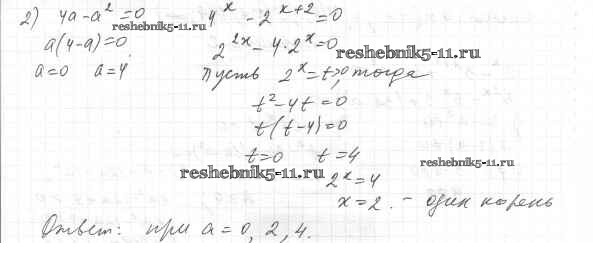 2) 4a-a²=0
a(4-a)=0.
a=0 a=4
4ˣ-2ˣ⁺²=0
2²ˣ-4·2ˣ=0
Пусть 2ˣ=t>0, тогда
t²-4t=0
t(t-4)=0
t=0 t=4
2ˣ=4
x=2. - один корень
Ответ: при a=0, 2, 4.
reshebnik5-11.ru
reshebnik5-11.ru
reshebnik5-11.ru
reshebnik5-11.ru